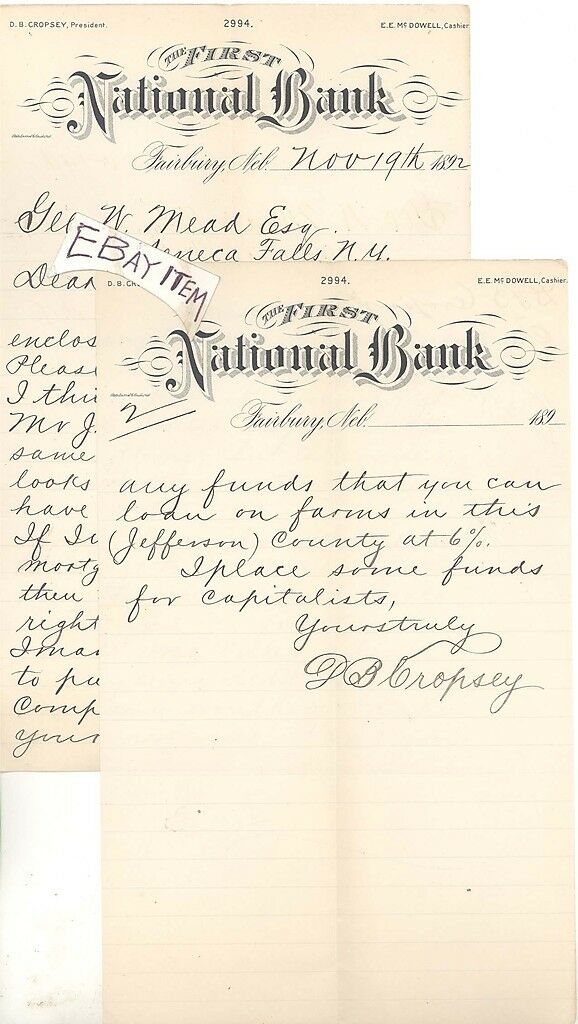 D. B. CROPSEY, President.
2994.
E. E. McDOWELL, Cashier
THE FIRST
National Bank
Fairbury, Neb. Nov 19th 1892
Geo W. Mead Esq
Seneca Falls N.Y.
EBAY ITEM
Dear
enclos
Pleas
I thi
Mr J.
same
looks
have
If I
mortg
then
right
I ma
to pu
comp
your
D. B. CR
2994.
E. E. McDOWELL, Cashier.
THE FIRST
National Bank
2
Fairbury, Neb. 189
any funds that you can
loan on farms in this
(Jefferson) County at 6%.
I place some funds
for capitalists,
Yours truly
D B Cropsey